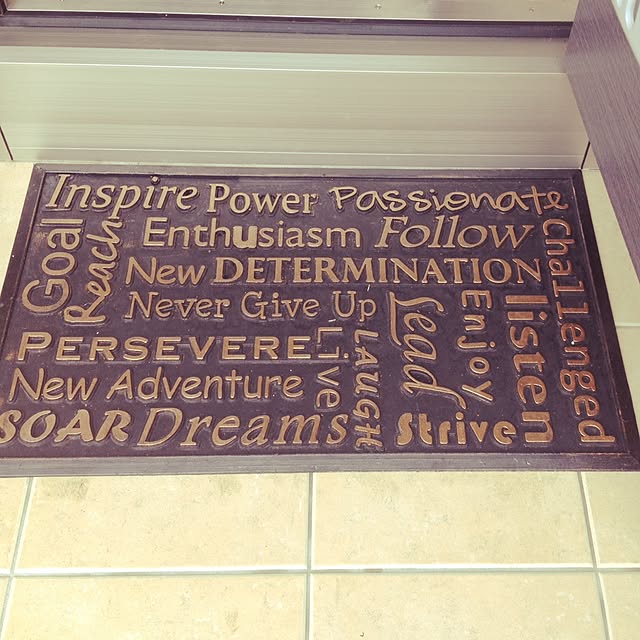 Inspire Power Passionate
Goal
Reach
Enthusiasm Follow
New DETERMINATION
Never Give Up
PERSEVERE
New Adventure
SOAR Dreams
Live
LAUGH
Lead
Enjoy
Strive
listen
Challenged